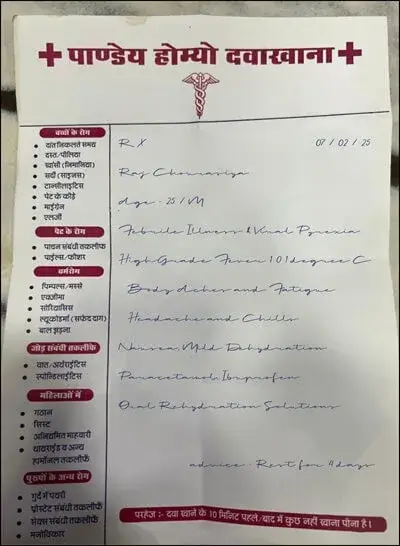 पाण्डेय होम्यो दवाखाना
बच्चों के रोग
दांत निकलते समय
दस्त/पीलिया
खांसी (निमोनिया)
सर्दी (साइनस)
टान्सीलाइटिस
पेट के कीड़े
माईग्रेन
एलर्जी
पेट के रोग
पाचन संबंधी तकलीफ
पाईल्स/फीशर
चर्मरोग
पिम्पल्स/मस्से
एक्जीमा
सोरियासिस
ल्यूकोडर्मा (सफेद दाग)
बाल झड़ना
जोड़ संबंधी तकलीफें
वात/अर्थराईटिस
स्पोंडिलाईटिस
महिलाओं में
गठान
सिस्ट
अनियमित माहवारी
थायराईड व अन्य
हार्मोनल तकलीफें
पुरुषों के अन्य रोग
गुर्दे में पथरी
प्रोस्टेट संबंधी तकलीफ
सेक्स संबंधी तकलीफ
मनोविकार
RX 07/02/25
Raj Chourasiya
age - 25/M
Febrile Illness & Viral Pyrexia
High Grade Fever 101 degree C
Body Aches and Fatigue
Headache and Chills
Nausea, Mild Dehydration
Paracetamol, Ibuprofen
Oral Rehydration Solutions
advice - Rest for 4 days
परहेज :- दवा खाने के 10 मिनिट पहले/बाद में कुछ नहीं खाना पीना है।